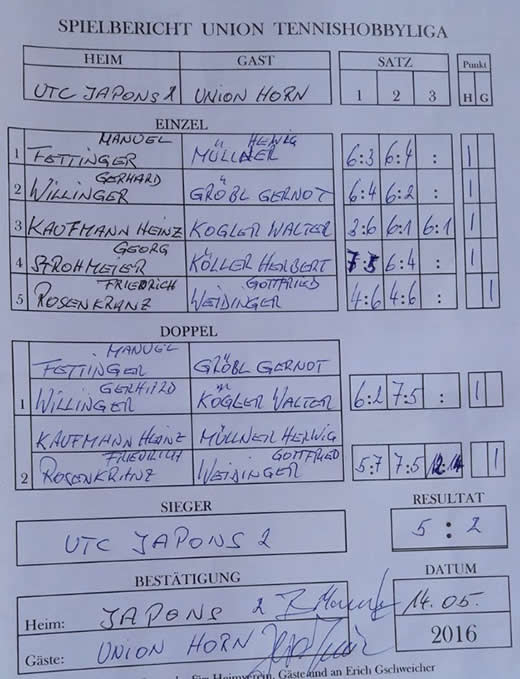 SPIELBERICHT UNION TENNISHOBBYLIGA
HEIM GAST SATZ Punkt
UTC JAPONS 2 UNION HORN 1 2 3 H G
EINZEL
MANUEL HELWIG
1 FETTINGER MÜLLNER 6:3 6:4 : 1
GERHARD
2 WILLINGER GRÖBL GERNOT 6:4 6:2 : 1
3 KAUFMANN HEINZ KOGLER WALTER 3:6 6:1 6:1 1
GEORG
4 STROHMEIER KÖLLER HERBERT 7:5 6:4 : 1
FRIEDRICH GOTTFRIED
5 ROSENKRANZ WEIDINGER 4:6 4:6 : 1
DOPPEL
MANUEL
FETTINGER GRÖBL GERNOT
GERHARD
1 WILLINGER KOGLER WALTER 6:2 7:5 : 1
KAUFMANN HEINZ MÜLLNER HELWIG
FRIEDRICH GOTTFRIED
2 ROSENKRANZ WEIDINGER 5:7 7:5 12:14 1
SIEGER RESULTAT
UTC JAPONS 2 5 : 2
BESTÄTIGUNG DATUM
Heim: JAPONS 2 14.05.
Gäste: UNION HORN 2016
für Heimverein, Gäste und an Erich Gschweicher